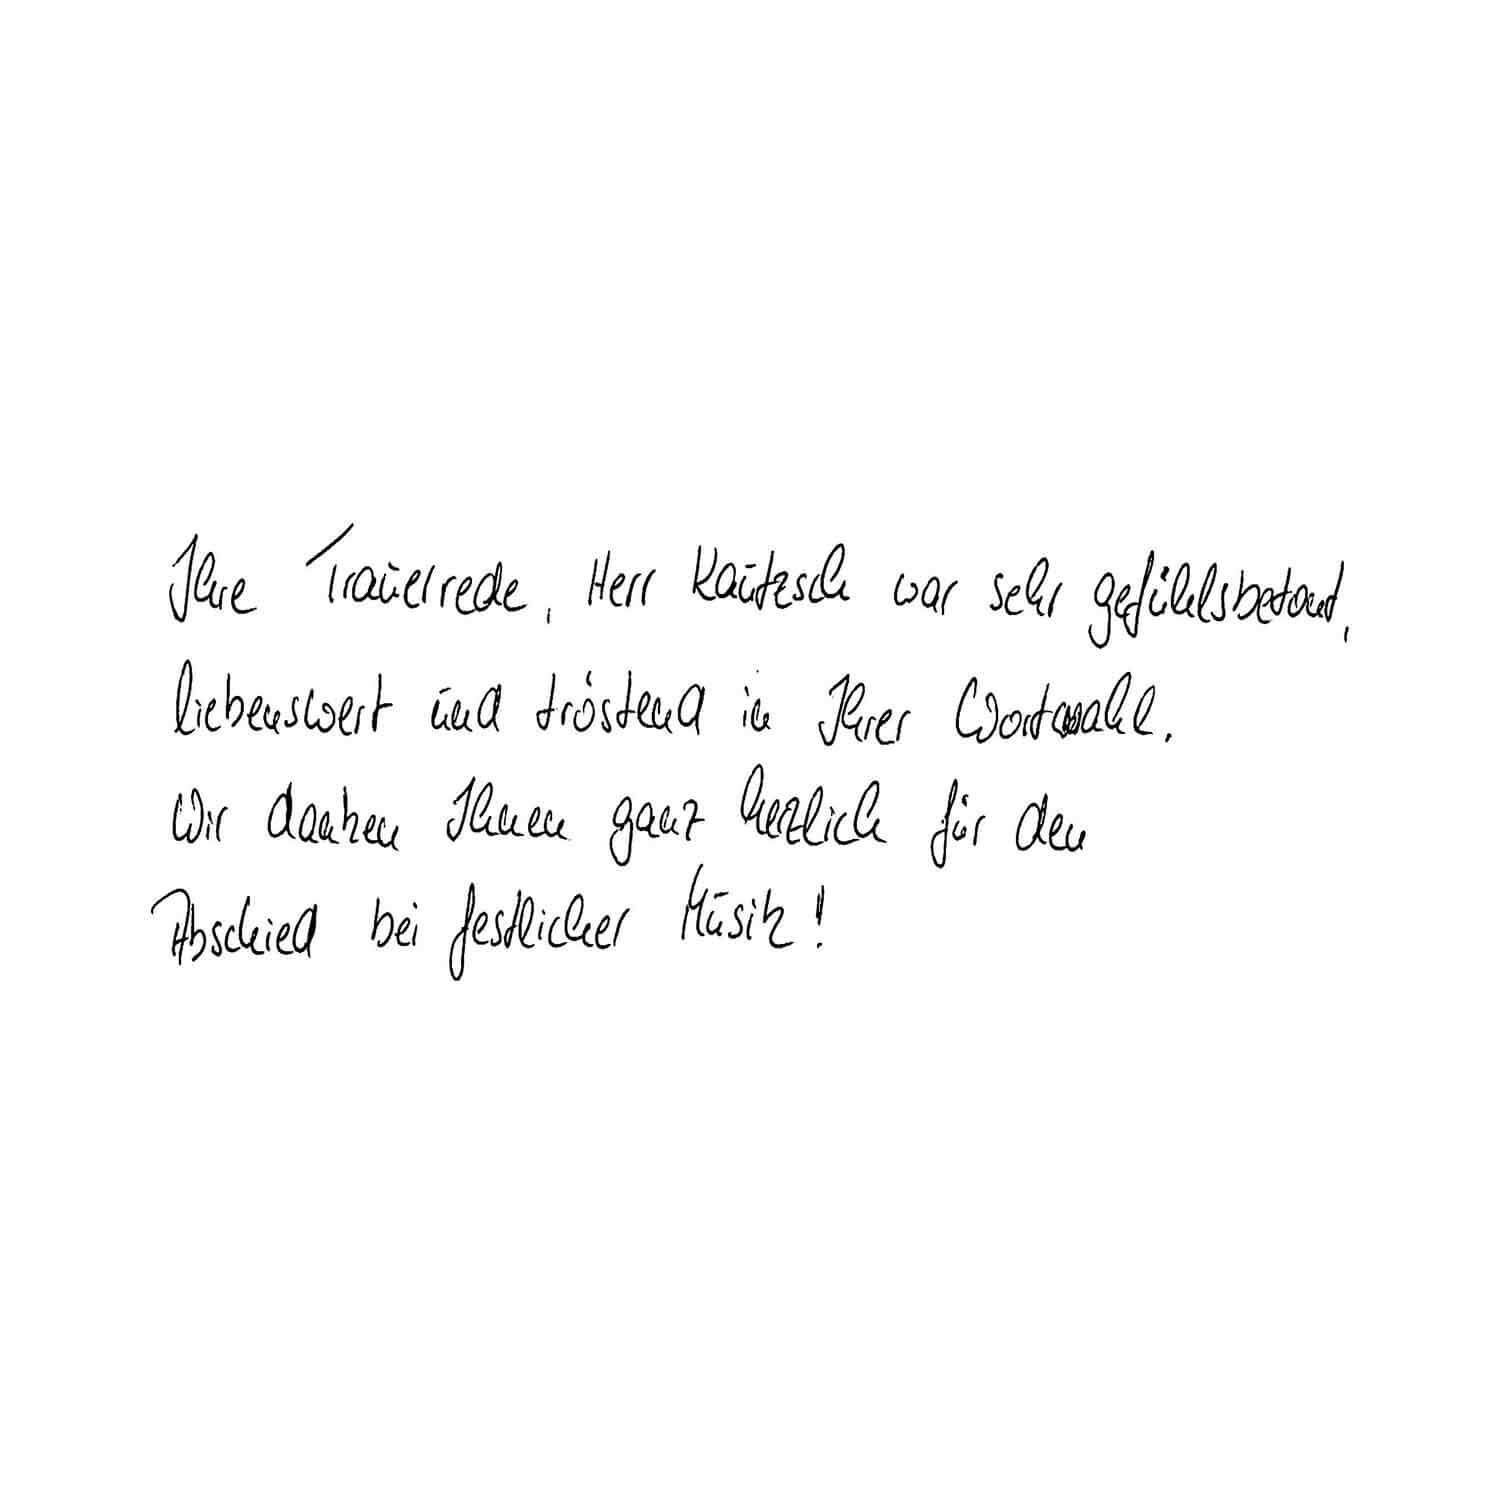 Ihre Trauerrede, Herr Kautzsch war sehr gefühlsbetont,
liebenswert und tröstend in Ihrer Wortwahl.
Wir danken Ihnen ganz herzlich für den
Abschied bei festlicher Musik!